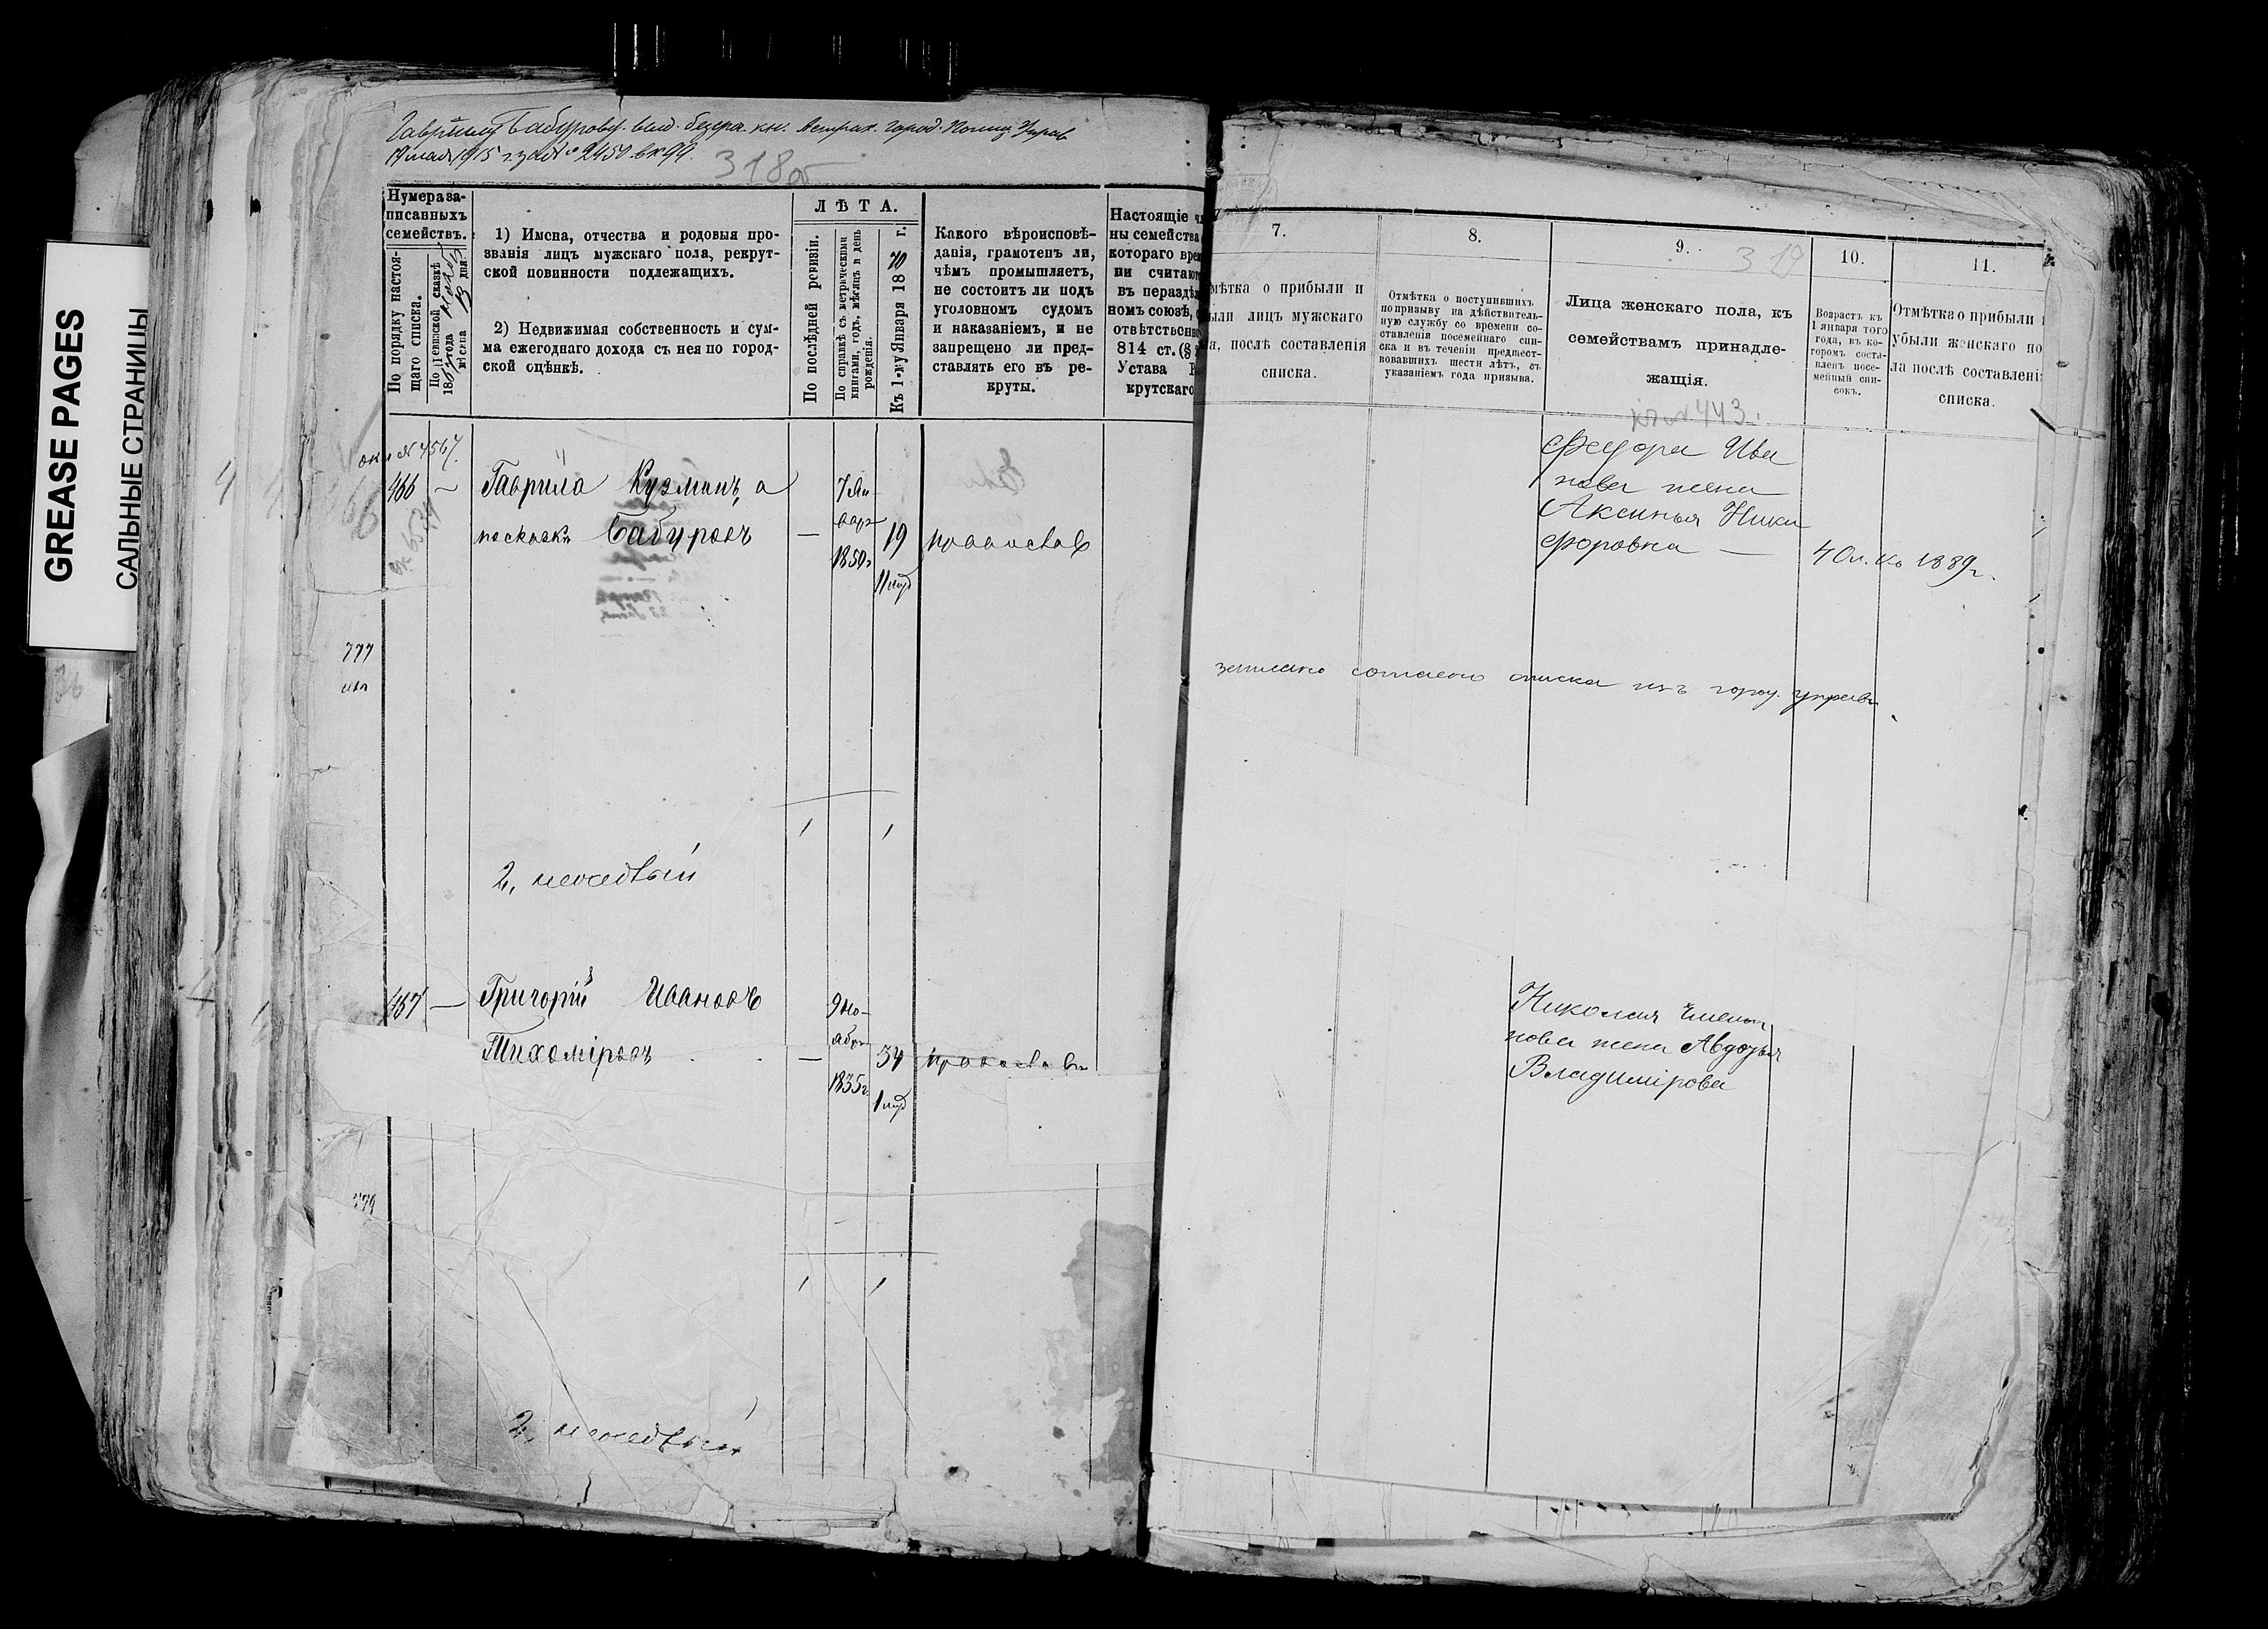 GREASE PAGES
САЛЬНЫЕ СТРАНИЦЫ
Гаврилу Бабурову выд. безсра. кн. Астрах. город. Полиц. Управ
19 мая 1915 г за № 2450
318 об
Нумера за-
писанныхъ
семействъ.
По порядку настоя-
щаго списка.
По ревизской сказкѣ
мѣсяца 13 дня.
1) Имена, отчества и родовыя про-
званія лицъ мужскаго пола, рекрут-
ской повинности подлежащихъ.
2) Недвижимая собственность и сум-
ма ежегоднаго дохода съ нея по город-
ской оцѣнкѣ.
ЛѢТА.
По послѣдней ревизіи.
По справкѣ съ метрическими
книгами, годъ, мѣсяцъ и день
рожденія.
Къ 1-му Января 1870 г.
Какого вѣроисповѣ-
данія, грамотенъ ли,
чѣмъ промышляетъ,
не состоитъ ли подъ
уголовномъ судомъ
и наказаніемъ, и не
запрещено ли пред-
ставлять его въ ре-
круты.
Настоящіе
ны семейства
котораго
ни считаю
въ нераздѣ
номъ союзѣ,
отвѣтствен
814 ст.
Устава
крутскаго
№ 4567.
466 — Гаврила Кузминъ, а
Бабуровъ — 7 Ян-
вар
1850 г 19 православ
777
1 1
2, неимѣетъ
467 — Григорій Ивановъ
Тихоміровъ — 9 Но-
ябр
1835 г. 34 православ
1 1
2, неимѣетъ
7.
мѣтка о прибыли и
были лицъ мужскаго
а, послѣ составленія
списка.
8.
Отмѣтка о поступившихъ
по призыву на дѣйствитель-
ную службу со времени со-
ставленія посемейнаго спи-
ска и въ теченіи предшест-
вовавшихъ шести лѣтъ, съ
указаніемъ года призыва.
9.
319
Лица женскаго пола, къ
семействамъ принадле-
жащія.
10.
Возрастъ къ
1 января того
года, въ ко-
торомъ соста-
вленъ посе-
мейный спи-
сокъ.
11.
Отмѣтка о прибыли и
убыли женскаго по
ла послѣ составленія
списка.
къ № 443.
Федора Ива
нова жена
Аксинья Ники
форовна — 40 л. къ 1889 г.
записано согласно списка изъ город. управы.
Николая
нова жена Авдотья
Владимірова